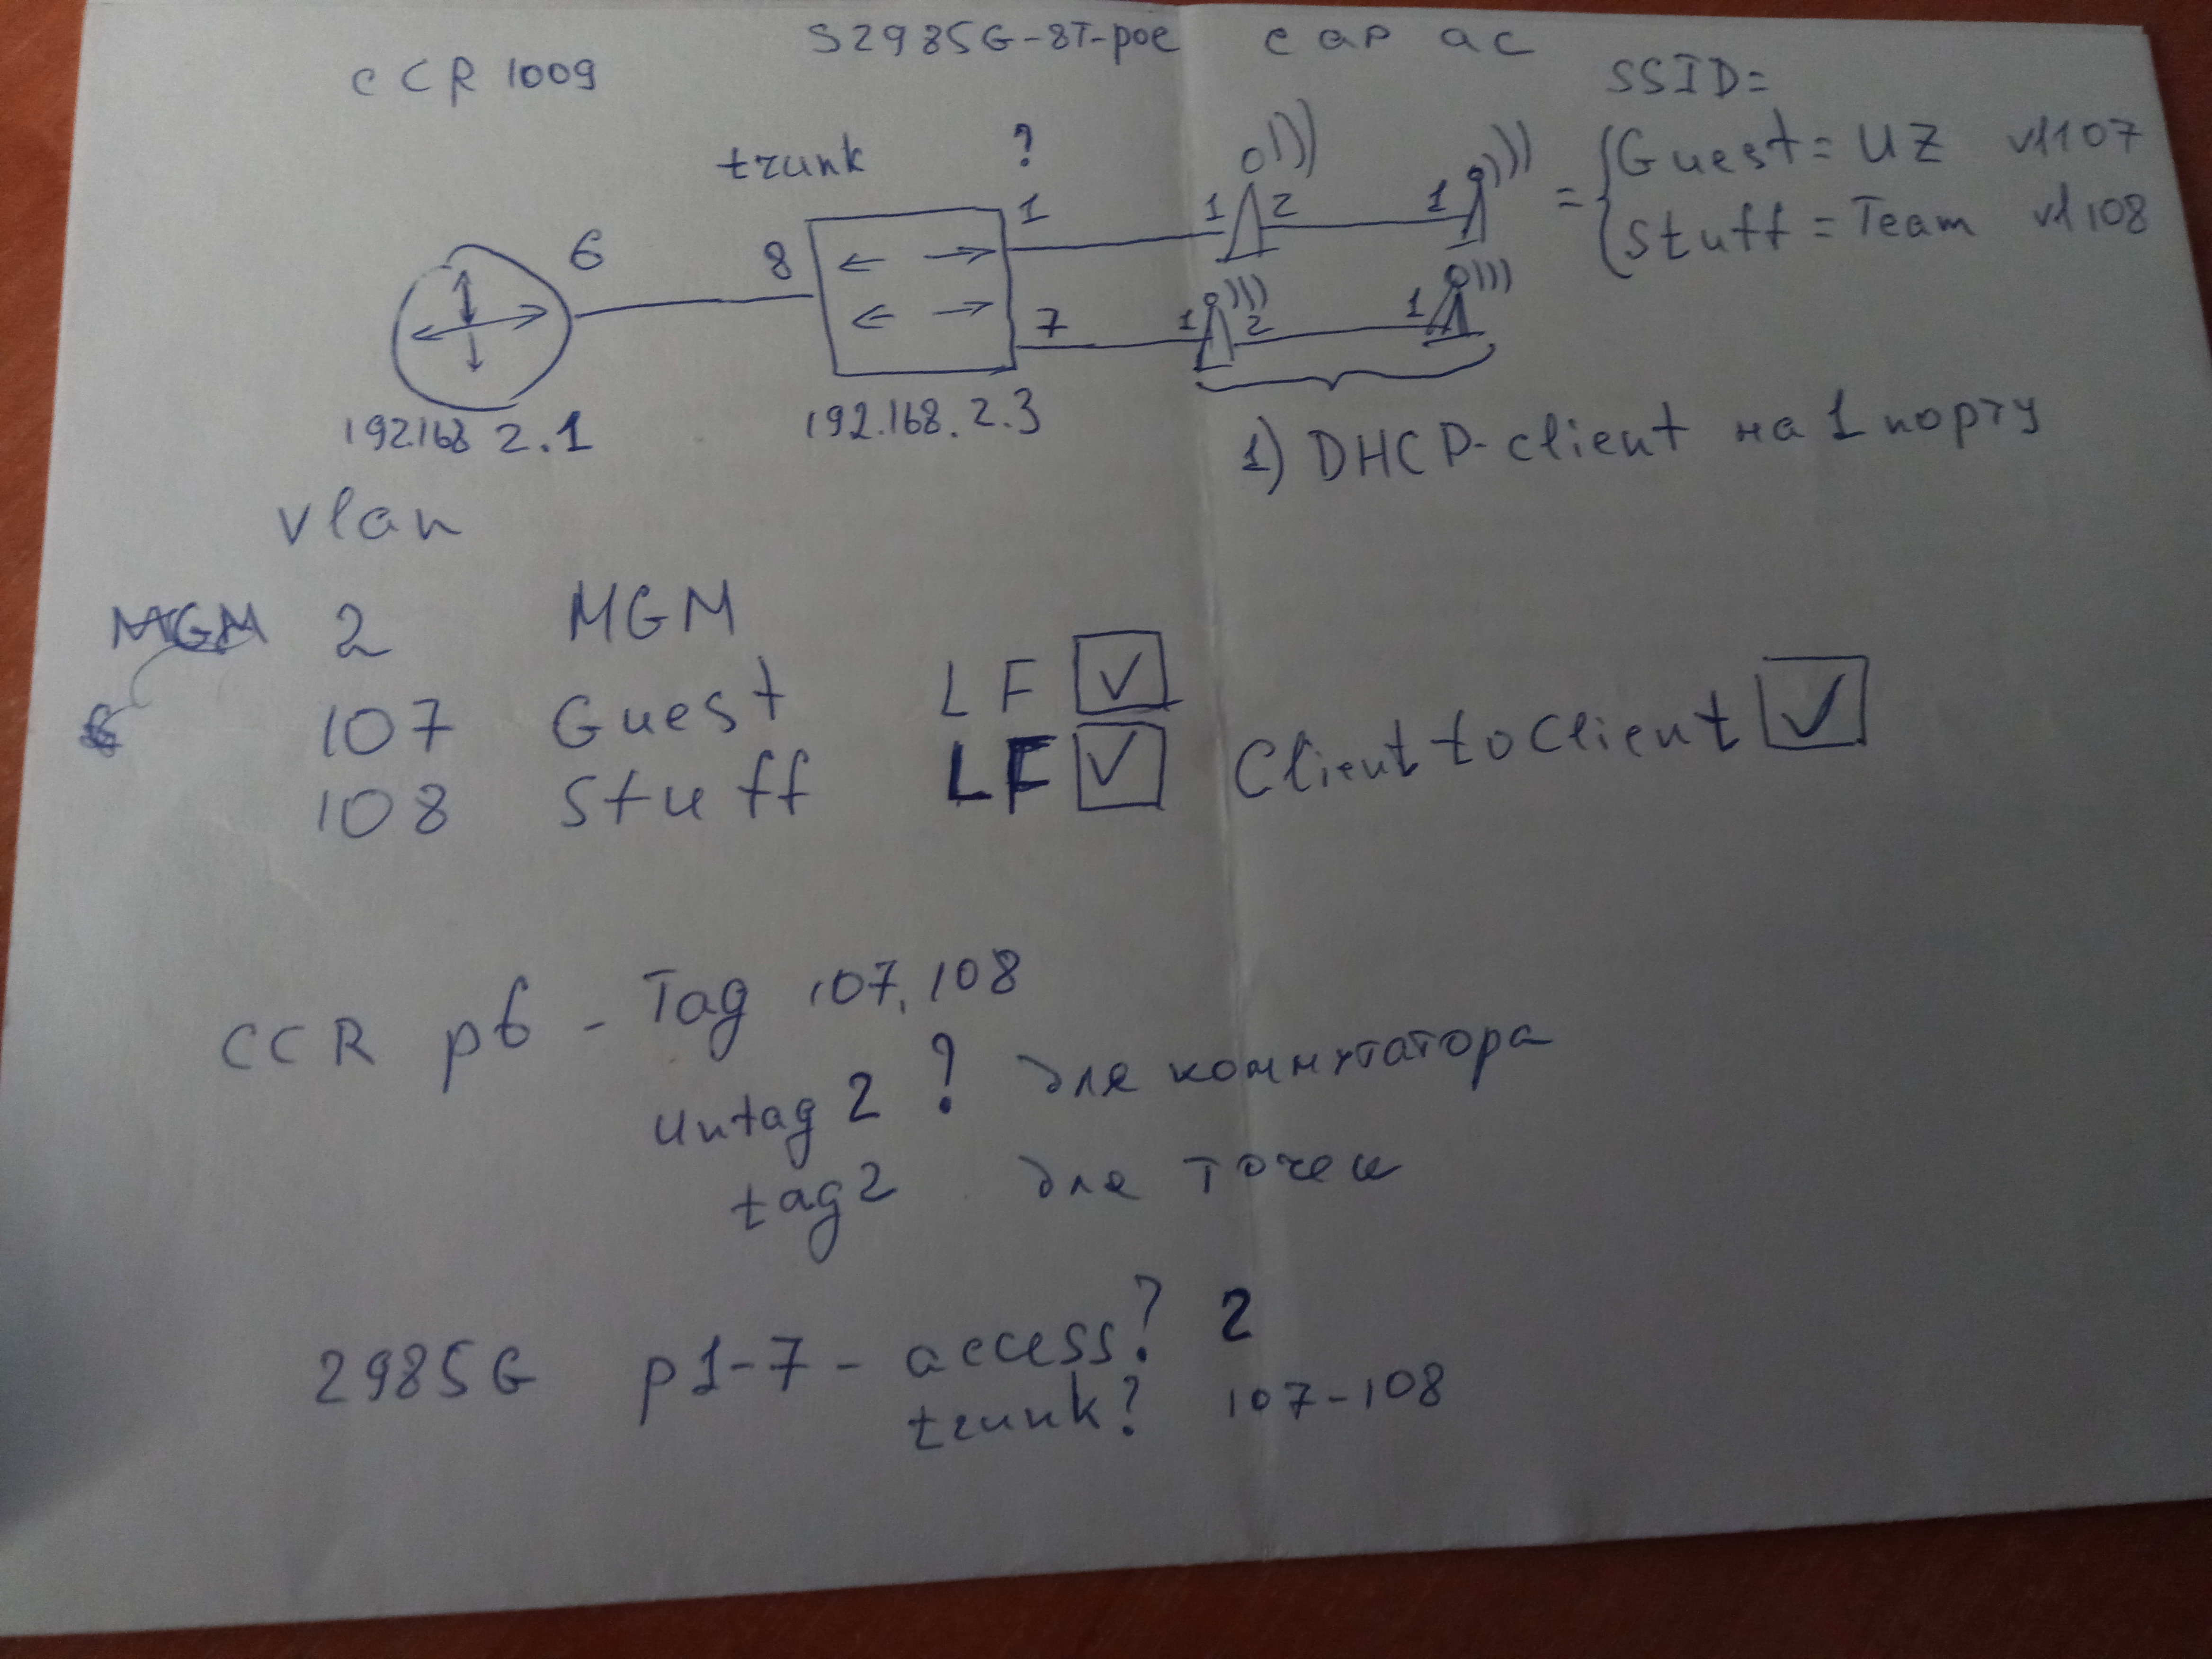 CCR 1009
S2985G-8T-poe
cap ac
SSID=
trunk
?
6
8
1
1
2
1
= { Guest = UZ vl107
Stuff = Team vl108
7
1
2
1
192.168 2.1
192.168.2.3
1) DHCP-client на 1 порту
vlan
MGM 2 MGM
107 Guest LF ✓
108 Stuff LF ✓ Client to Client ✓
CCR p6 - Tag 107, 108
untag 2 ? для коммутатора
tag 2 для точек
2985G p1-7 - access? 2
trunk? 107-108